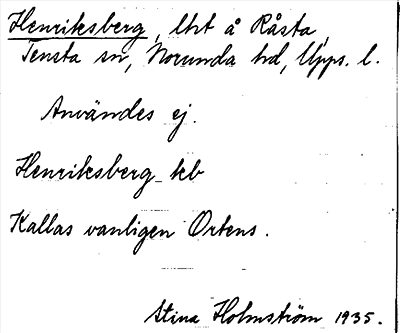 Henriksberg, lht å Råsta,
Tensta sn, Norunda hd, Upps. l.
Användes ej.
Henriksberg kb
Kallas vanligen Ortens.
Stina Holmström 1935.